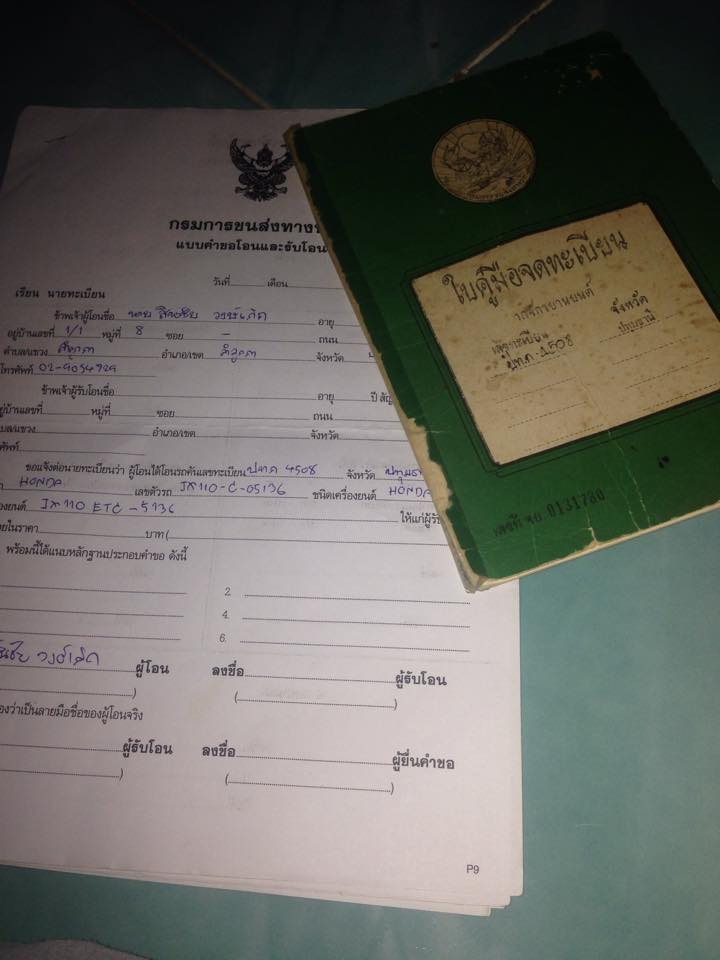 กรมการขนส่งทาง
แบบคำขอโอนและรับโอน
วันที่ เดือน
เรียน นายทะเบียน
ข้าพเจ้าผู้โอนชื่อ นาย อายุ
อยู่บ้านเลขที่ 1/1 หมู่ที่ 8 ซอย - ถนน
ตำบล/แขวง อำเภอ/เขต ลำลูกกา จังหวัด
โทรศัพท์ 02-9054929
ข้าพเจ้าผู้รับโอนชื่อ อายุ ปี
อยู่บ้านเลขที่ หมู่ที่ ซอย ถนน
อำเภอ/เขต จังหวัด
ขอแจ้งต่อนายทะเบียนว่า ผู้โอนได้โอนรถคันเลขทะเบียน ปทภ 4508 จังหวัด
HONDA เลขตัวรถ JX110-C-05136 ชนิดเครื่องยนต์ HONDA
JX110 ETC-5136 ให้แก่ผู้รับ
ในราคา บาท (
พร้อมนี้ได้แนบหลักฐานประกอบคำขอ ดังนี้
2.
4.
6.
ผู้โอน ลงชื่อ ผู้รับโอน
( )
ว่าเป็นลายมือชื่อของผู้โอนจริง
ผู้รับโอน ลงชื่อ ผู้ยื่นคำขอ
( )
P9
ใบคู่มือจดทะเบียน
รถจักรยานยนต์
เลขทะเบียน จังหวัด
ปทภ-4508 ปทุมธานี
เลขที่ จย 0131780